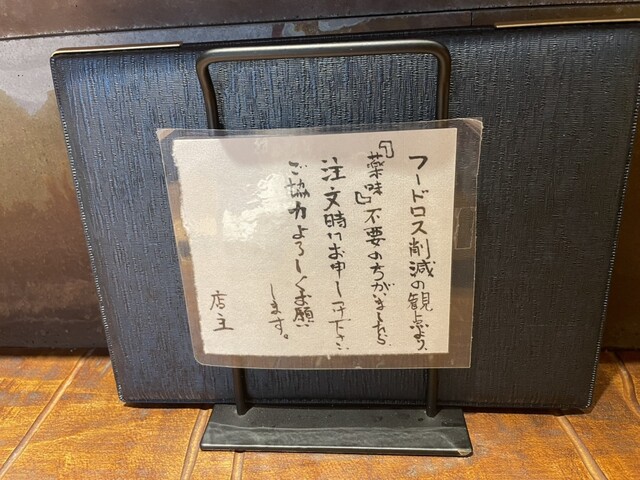 フードロス削減の観点より、
『薬味』不要の方がいましたら
注文時にお申し付け下さい
ご協力よろしくお願い
します。
店主